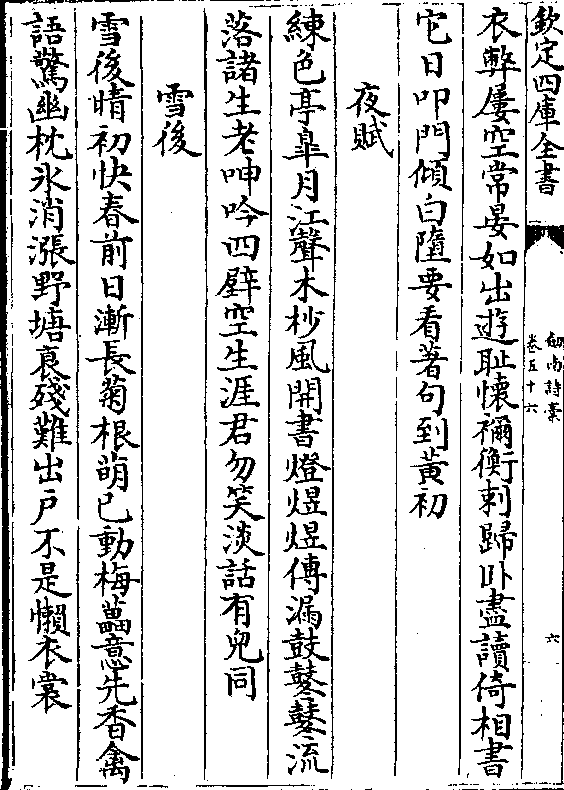 欽定四庫全書
劍南詩稾
卷五十六
六
衣弊屢空常晏如出遊恥懷禰衡刺歸卧盡讀倚相書
它日叩門傾白墮要看著句到黃初
夜賦
練色亭臯月江聲木杪風開書燈煜煜傳漏鼓鼕鼕流
落諸生老呻吟四壁空生涯君勿笑淡話有兒同
雪後
雪後晴初快春前日漸長菊根萌已動梅蘂意先香禽
語驚幽枕氷消漲野塘衰殘難出戶不是懶衣裳